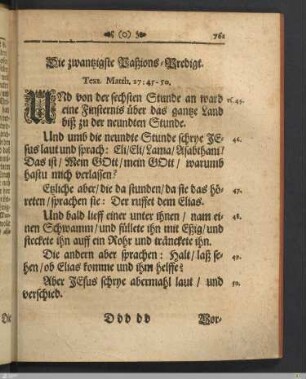 (o) 761
Die zwantzigste Paßions-Predigt.
Text. Matth. 27: 45-50.
UNd von der sechsten Stunde an ward vſ. 45.
eine Finsternis über das gantze Land
biß zu der neundten Stunde.
Und umb die neundte Stunde schrye JE- 46.
sus laut und sprach: Eli/Eli/Lama/Asabthani/
Das ist/ Mein GOtt/mein GOtt/ warumb
hastu mich verlassen?
Etzliche aber/die da stunden/da sie das hö- 47.
reten/sprachen sie: Der ruffet dem Elias.
Und bald lieff einer unter ihnen/ nam ei- 48.
nen Schwamm/ und füllete ihn mit Eßig/und
steckete ihn auff ein Rohr und tränckete ihn.
Die andern aber sprachen: Halt/ laß se- 49.
hen/ob Elias komme und ihm helffe?
Aber JEsus schrye abermahl laut/ und 50.
verschied.
Ddd dd Vor-
Die